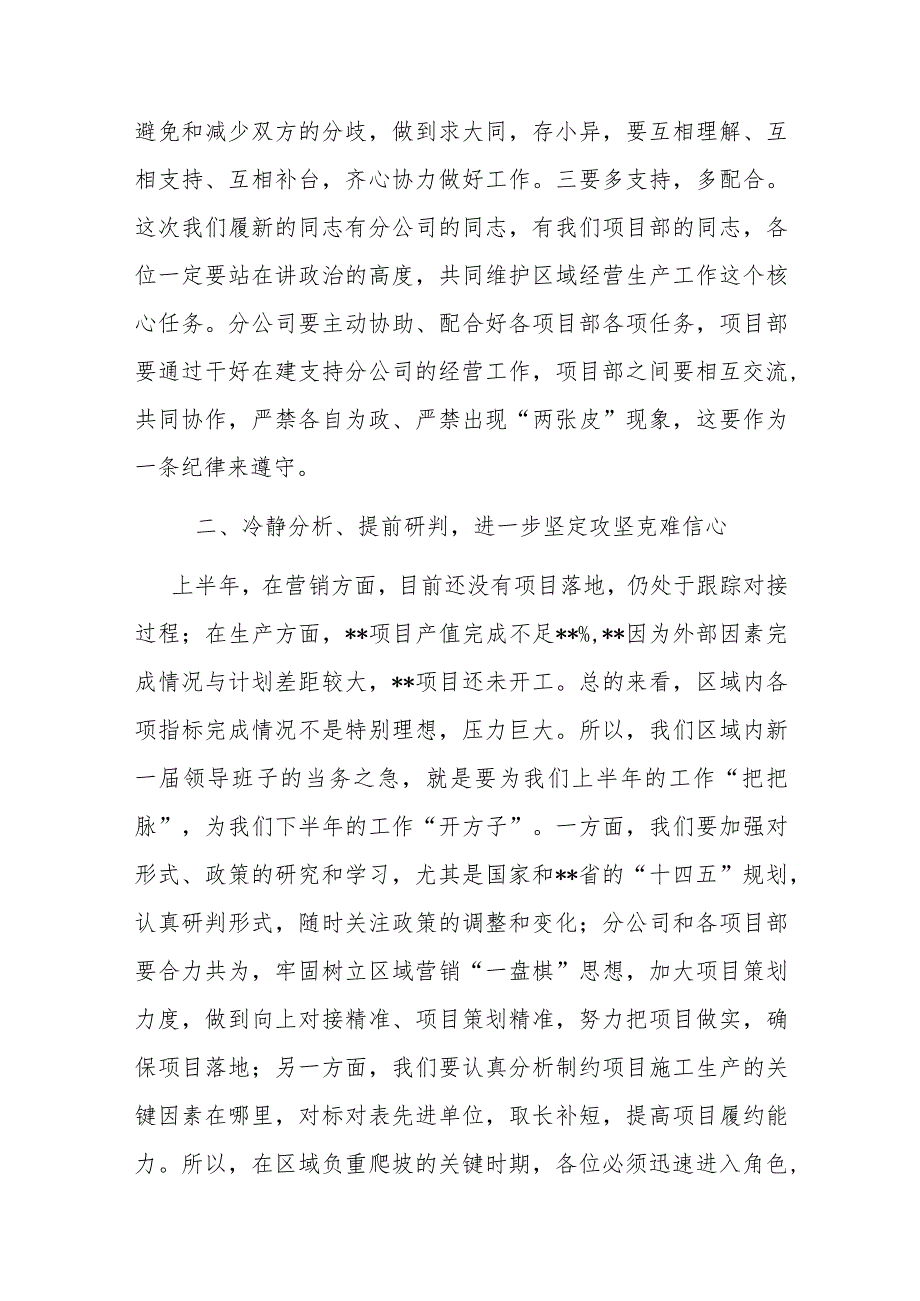 避免和减少双方的分歧，做到求大同，存小异，要互相理解、互
相支持、互相补台，齐心协力做好工作。三要多支持，多配合。
这次我们履新的同志有分公司的同志，有我们项目部的同志，各
位一定要站在讲政治的高度，共同维护区域经营生产工作这个核
心任务。分公司要主动协助、配合好各项目部各项任务，项目部
要通过干好在建支持分公司的经营工作，项目部之间要相互交流,
共同协作，严禁各自为政、严禁出现“两张皮”现象，这要作为
一条纪律来遵守。
二、冷静分析、提前研判，进一步坚定攻坚克难信心
上半年，在营销方面，目前还没有项目落地，仍处于跟踪对接
过程；在生产方面，**项目产值完成不足**%,**因为外部因素完
成情况与计划差距较大，**项目还未开工。总的来看，区域内各
项指标完成情况不是特别理想，压力巨大。所以，我们区域内新
一届领导班子的当务之急，就是要为我们上半年的工作“把把
脉”，为我们下半年的工作“开方子”。一方面，我们要加强对
形式、政策的研究和学习，尤其是国家和**省的“十四五”规划,
认真研判形式，随时关注政策的调整和变化；分公司和各项目部
要合力共为，牢固树立区域营销“一盘棋”思想，加大项目策划
力度，做到向上对接精准、项目策划精准，努力把项目做实，确
保项目落地；另一方面，我们要认真分析制约项目施工生产的关
键因素在哪里，对标对表先进单位，取长补短，提高项目履约能
力。所以，在区域负重爬坡的关键时期，各位必须迅速进入角色,